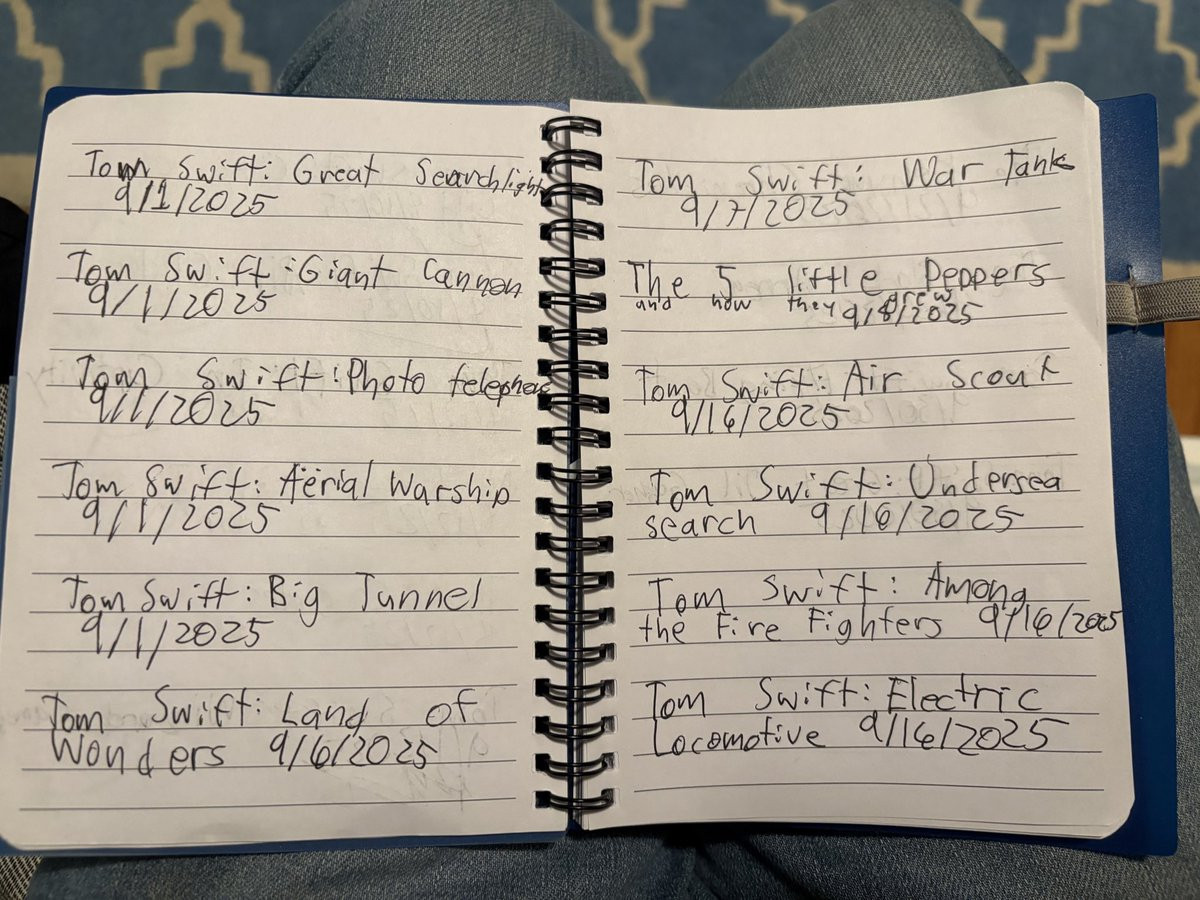 Tom Swift: Great Searchlight
9/1/2025
Tom Swift: Giant Cannon
9/1/2025
Tom Swift: Photo telephone
9/1/2025
Tom Swift: Aerial Warship
9/1/2025
Tom Swift: Big Tunnel
9/1/2025
Tom Swift: Land of
Wonders 9/6/2025
Tom Swift: War Tank
9/7/2025
The 5 little Peppers
and how they grew 9/8/2025
Tom Swift: Air Scout
9/16/2025
Tom Swift: Undersea
search 9/16/2025
Tom Swift: Among
the Fire Fighters 9/16/2025
Tom Swift: Electric
Locomotive 9/16/2025